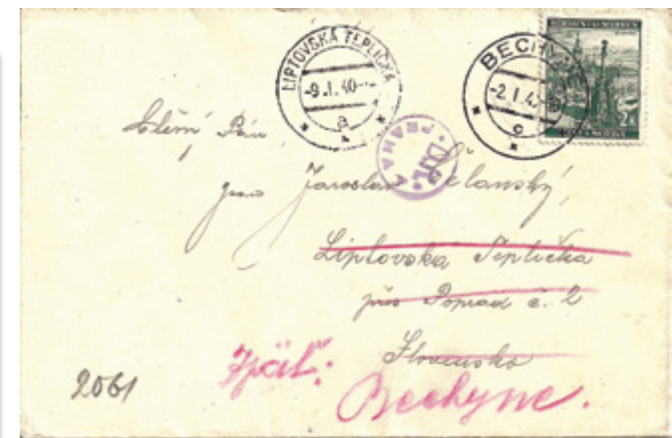 LIPTOVSKÁ TEPLIČKA
-9.I.40-
a
BECHY
-2.I.4
c
2K
PRAHA
Pán
pan Jaroslav
Liptovská Teplička
přes Poprad č. 2
Slovensko
Zpäť:
Bechyne.
2061